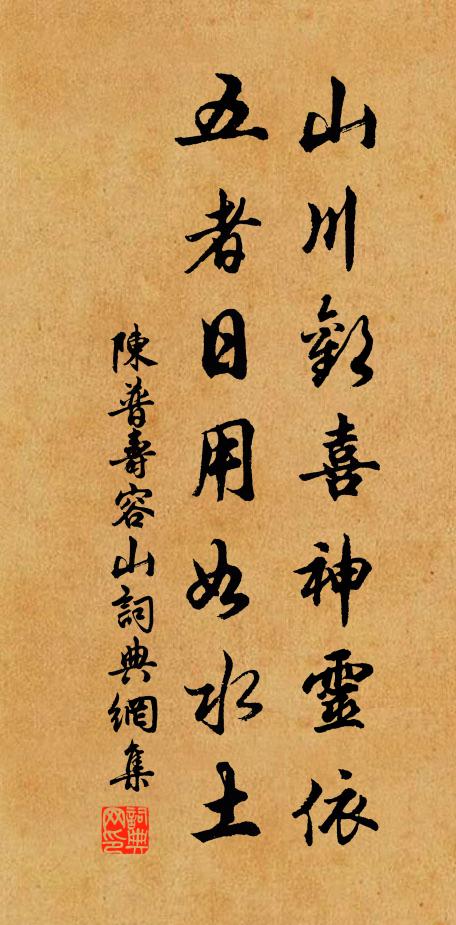 山川歡喜神靈依
五者日用如水土
陳普壽容山詞典網集
詞典网印